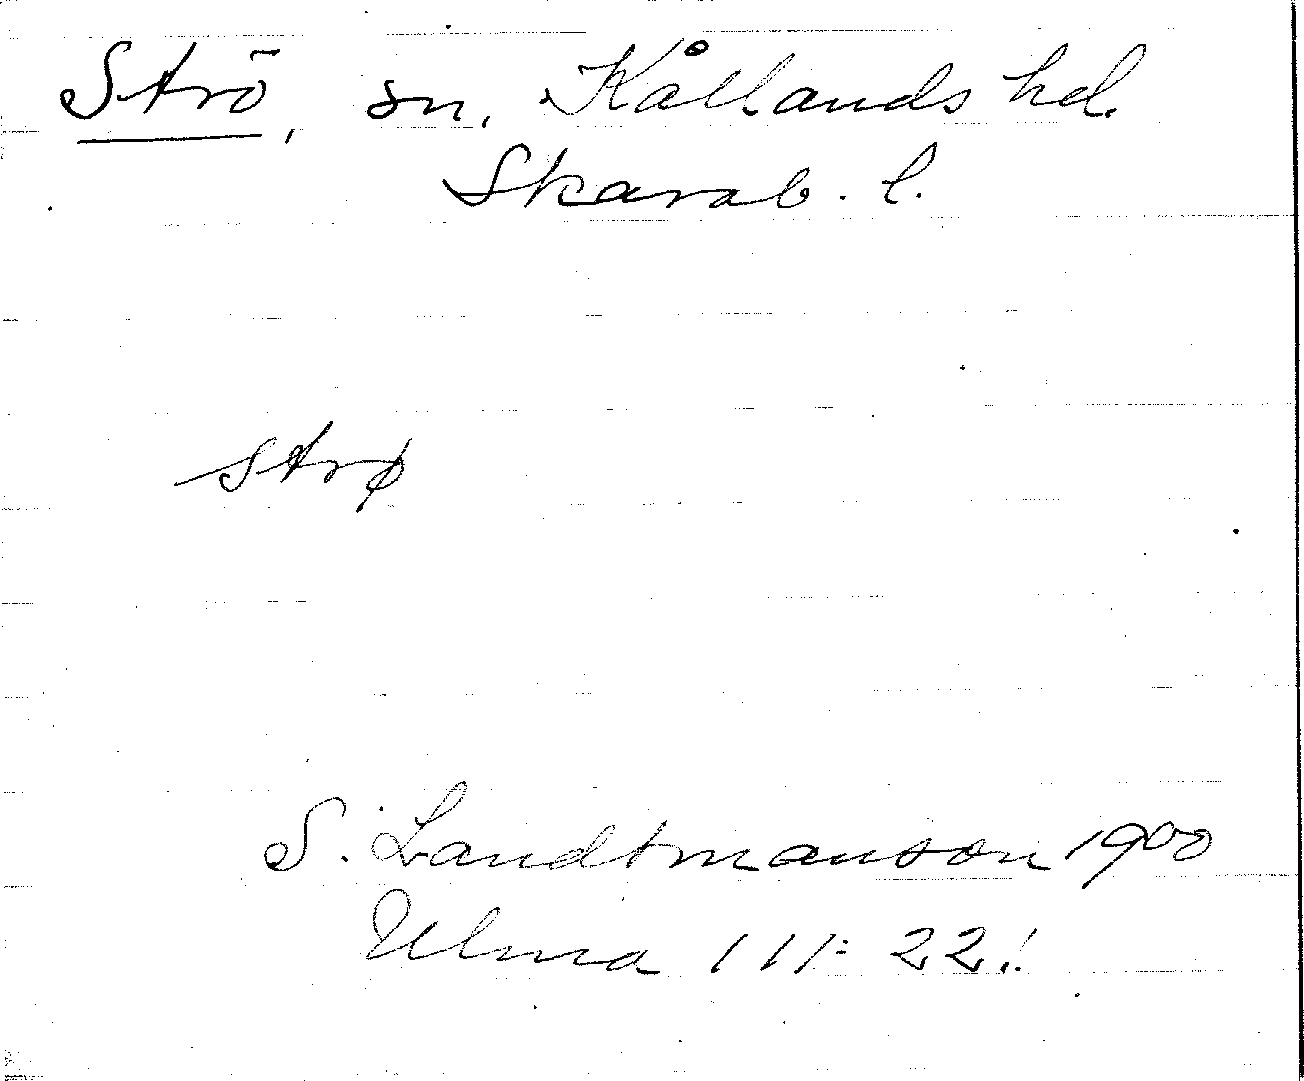 Strö, sn, Kållands hd.
Skarab. l.
strø
S. Landtmanson 1900
Ulma 111: 22!